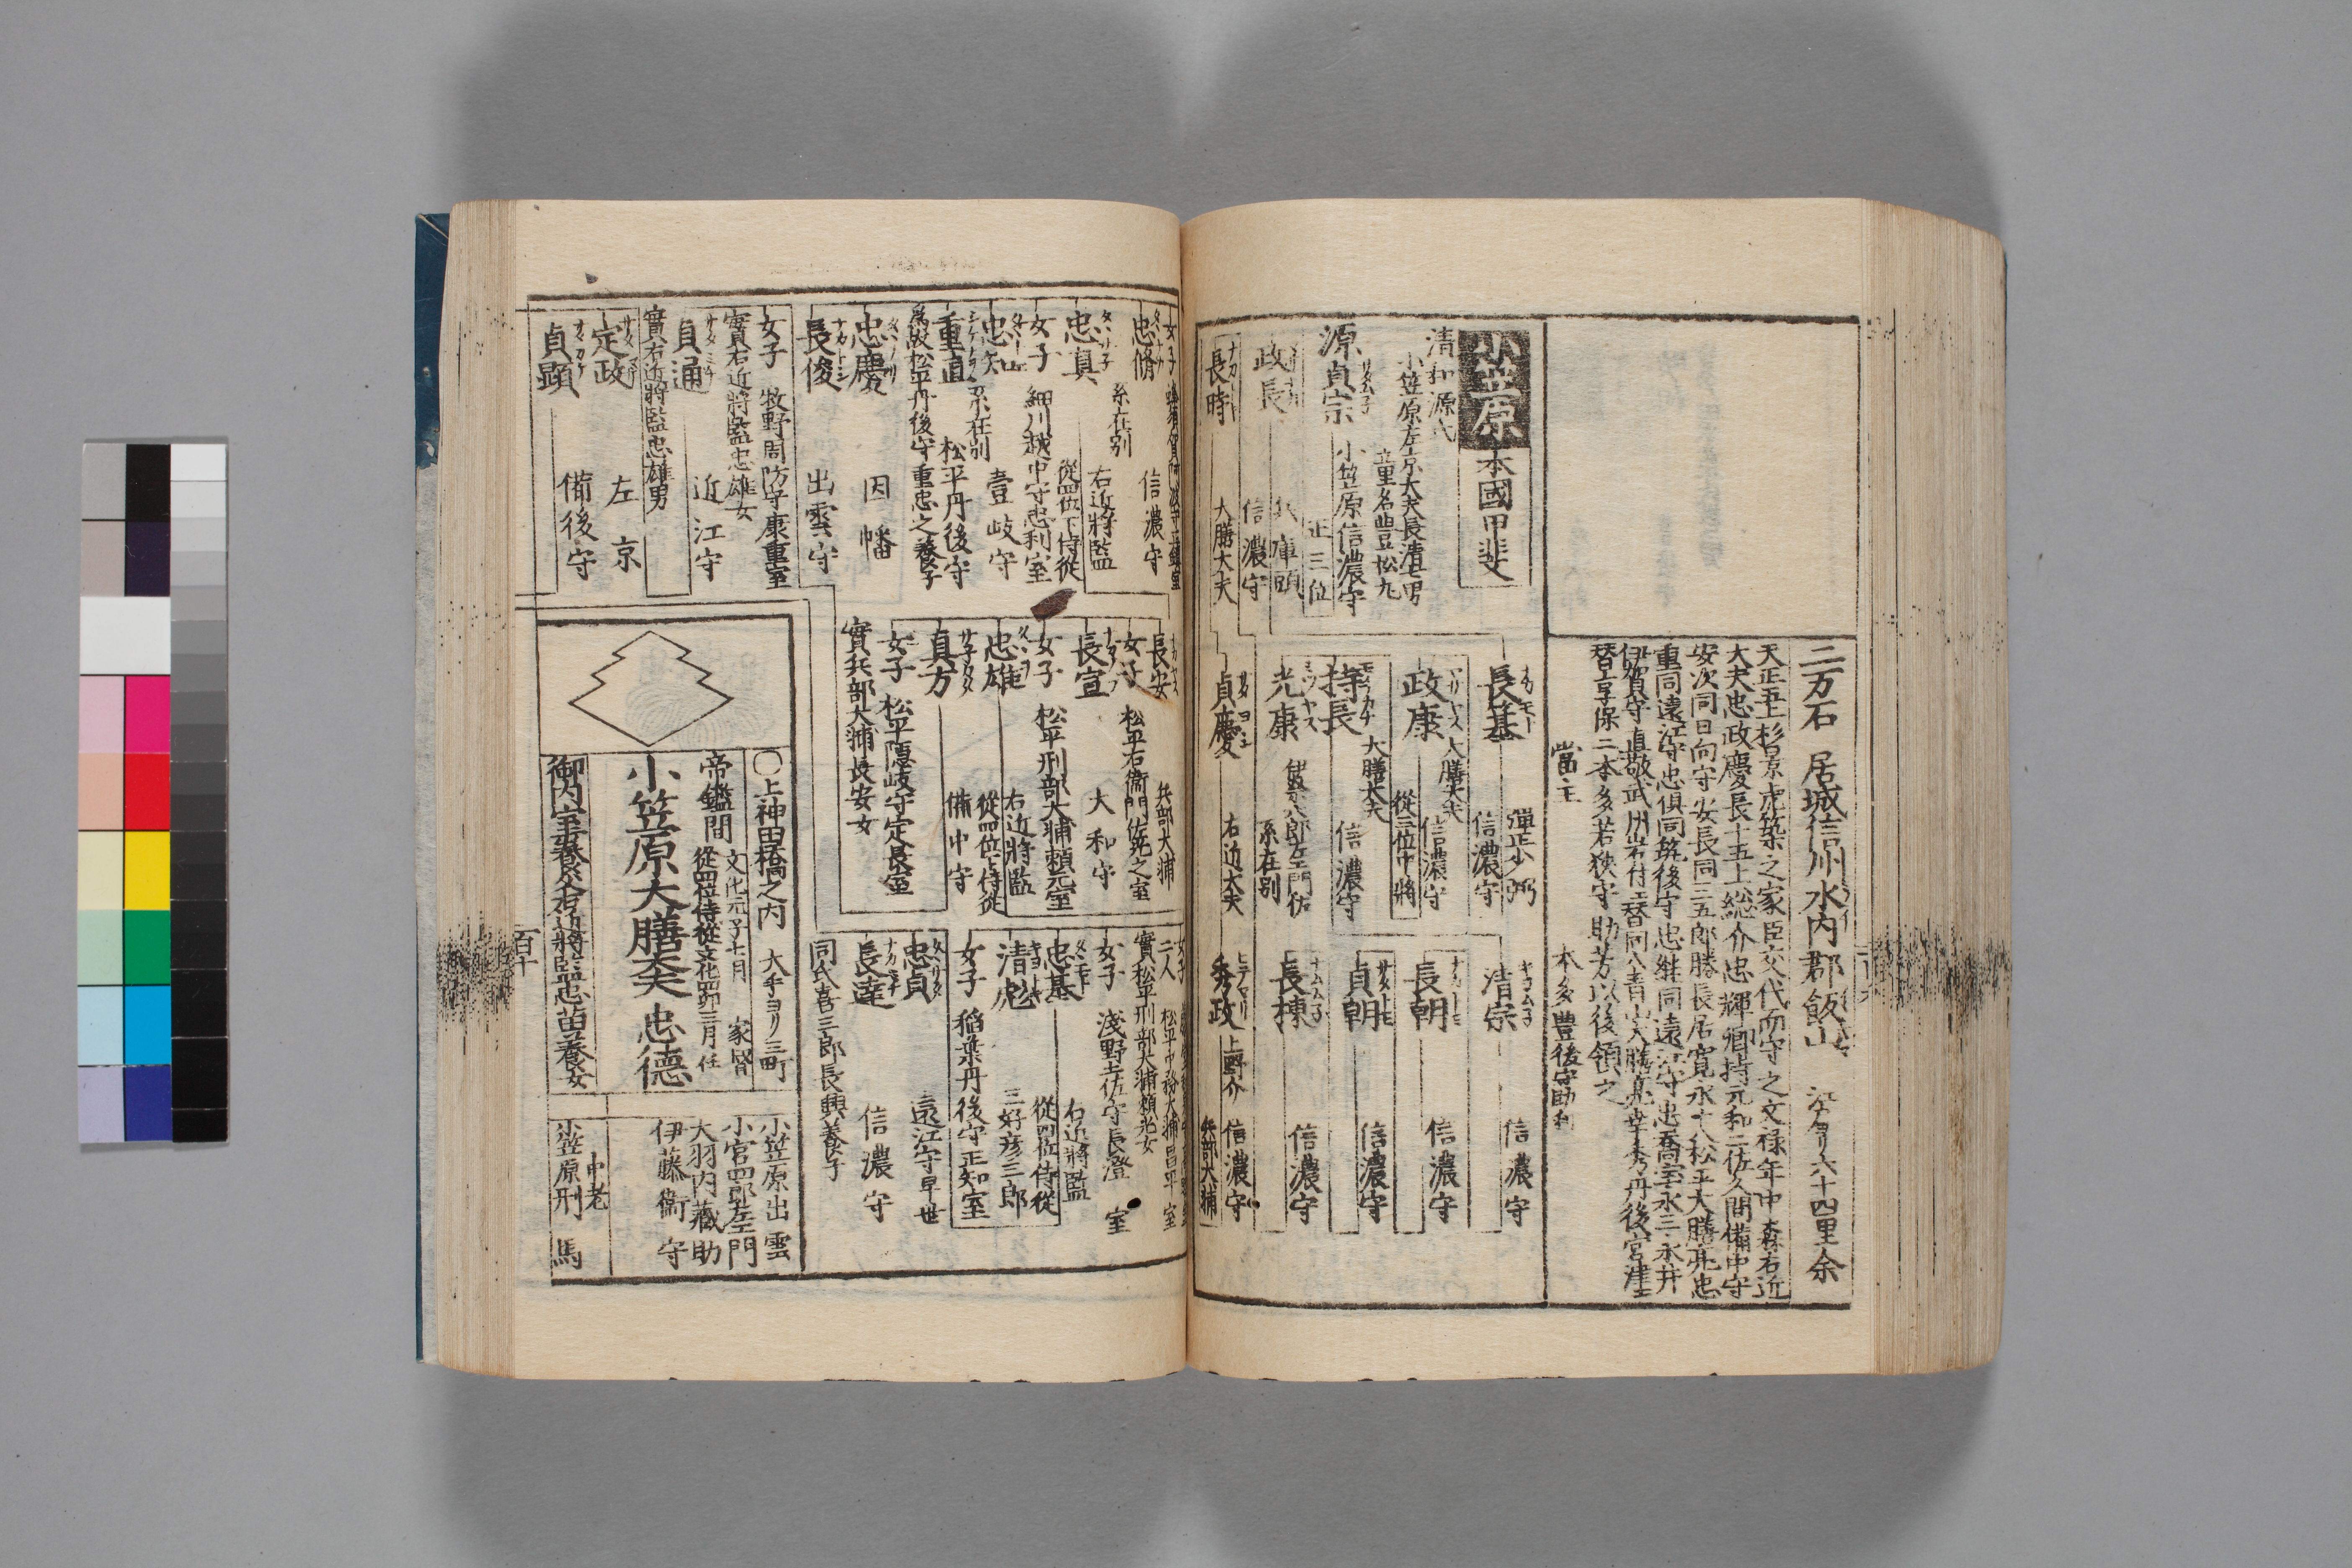 二万石　居城信州水内郡飯山　江戸ヨリ六十四里余
天正五上杉景虎築之家臣交代而守之文禄年中森右近
大夫忠政慶長十五上総介忠輝卿持元和二佐久間備中守
安次同日向守安長同三五郎勝長居寛永十八松平大膳亮忠
重同遠江守忠倶同筑後守忠継同遠江守忠喬宝永三永井
伊賀守直敬武州岩付エ替同八青山大膳亮幸秀丹後宮津エ
替享保二本多若狭守助芳以後領之
當主　本多豊後守助利
小笠原　本國甲斐
清和源氏
小笠原左京大夫長清七男
童名豊松丸
源貞宗　小笠原信濃守
正三位
政長　兵庫頭
信濃守
長基　弾正少弼
信濃守
政康　大膳大夫
信濃守
從三位中將
持長　大膳大夫
信濃守
光康
系在別
清宗　信濃守
長朝　信濃守
貞朝　信濃守
長棟　信濃守
長時　大膳大夫
貞慶　右近大夫
秀政　上野介
信濃守
兵部大輔
女子
忠脩　信濃守
系在別
忠真　右近將監
從四位下侍從
女子　細川越中守忠利室
忠知　壹岐守
系在別
重直　松平丹後守
為嗣松平丹後守重忠之養子
忠慶　因幡
長俊　出雲守
長安　兵部大輔
女子　松平右衞門佐光之室
長宣　大和守
女子　松平刑部大輔頼元室
忠雄　右近將監
從四位下侍從
真方　備中守
女子　松平隠岐守定長室
實兵部大輔長安女
女子　牧野周防守康重室
實右近將監忠雄女
貞通　近江守
實右近將監忠雄男
定政　左京
貞顕　備後守
女子
二人　松平中務大輔昌平室
實松平刑部大輔頼元女
女子　淺野土佐守長澄室
忠基　右近將監
從四位侍從
清松　三好彦三郎
女子　稲葉丹後守正知室
忠貞　遠江守早世
長達　信濃守
同氏喜三郎長興養子
〇上神田橋之内　大手ヨリ三町
帝鑑間　文化元子七月　家督
從四位侍從文化四卯三月任
小笠原大膳大夫忠徳
御内室養父右近將監忠苗養女
小笠原出雲
小宮四郎左エ門
大羽内藏助
伊藤衞守
中老
小笠原刑馬
百十